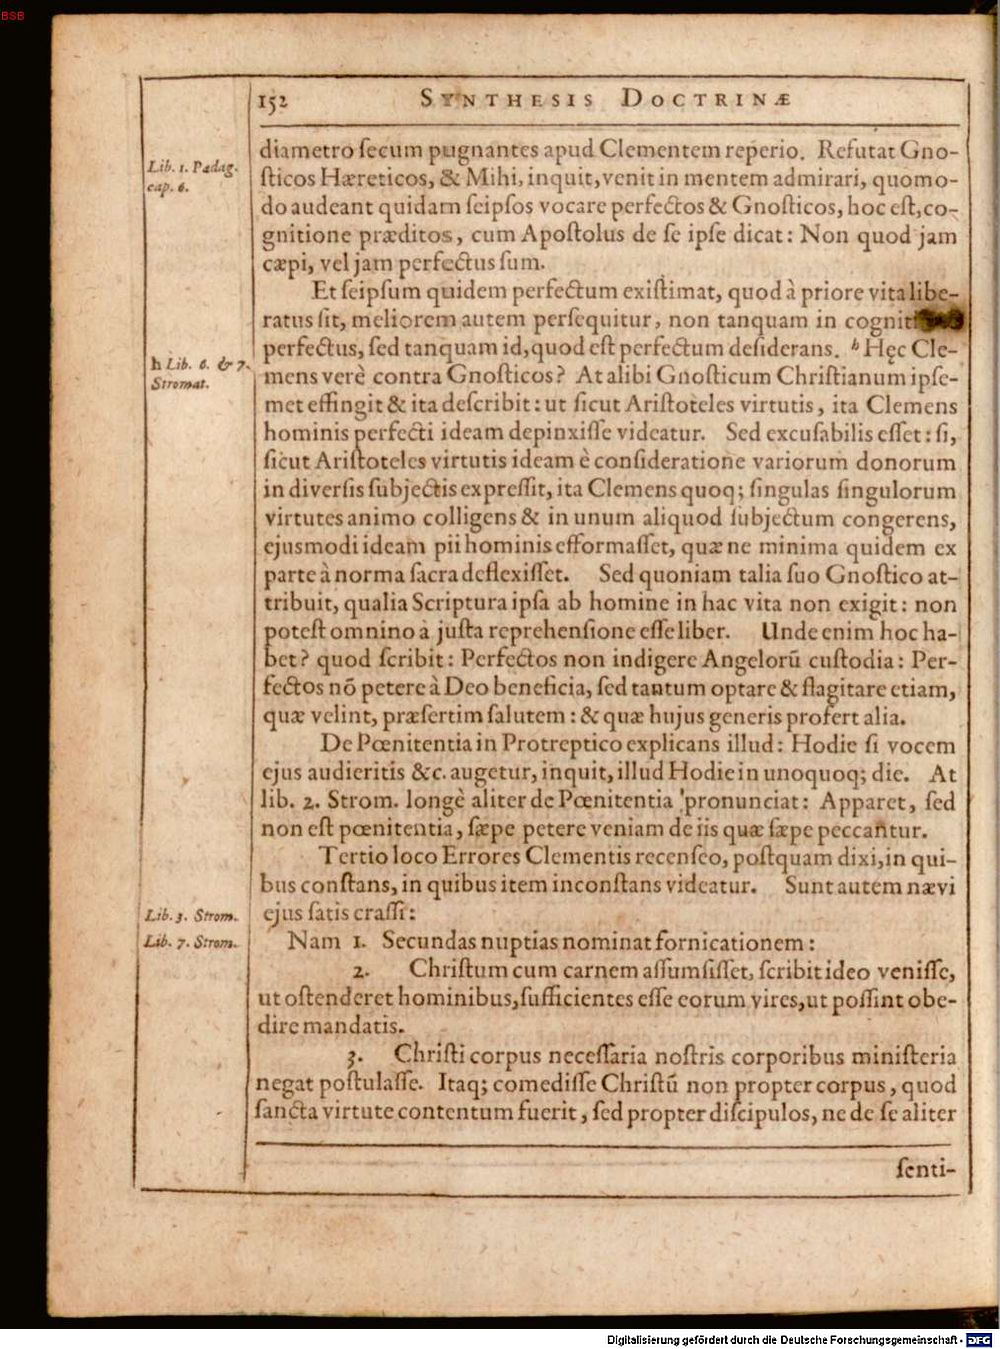 BSB
152 SYNTHESIS DOCTRINÆ
diametro ſecum pugnantes apud Clementem reperio. Refutat Gno-
Lib. 1. Pædag.
cap. 6.
ſticos Hæreticos, & Mihi, inquit, venit in mentem admirari, quomo-
do audeant quidam ſeipſos vocare perfectos & Gnoſticos, hoc eſt, co-
gnitione præditos, cum Apoſtolus de ſe ipſe dicat: Non quod jam
cæpi, vel jam perfectus ſum.
Et ſeipſum quidem perfectum exiſtimat, quod à priore vita libe-
ratus ſit, meliorem autem perſequitur, non tanquam in cogniti
perfectus, ſed tanquam id, quod eſt perfectum deſiderans. h Hęc Cle-
h Lib. 6. & 7.
Stromat.
mens verè contra Gnoſticos? At alibi Gnoſticum Chriſtianum ipſe-
met effingit & ita deſcribit: ut ſicut Ariſtoteles virtutis, ita Clemens
hominis perfecti ideam depinxiſſe videatur. Sed excuſabilis eſſet: ſi,
ſicut Ariſtoteles virtutis ideam è conſideratione variorum donorum
in diverſis ſubjectis expreſſit, ita Clemens quoq; ſingulas ſingulorum
virtutes animo colligens & in unum aliquod ſubjectum congerens,
ejusmodi ideam pii hominis efformaſſet, quæ ne minima quidem ex
parte à norma ſacra deflexiſſet. Sed quoniam talia ſuo Gnoſtico at-
tribuit, qualia Scriptura ipſa ab homine in hac vita non exigit: non
poteſt omnino à juſta reprehenſione eſſe liber. Unde enim hoc ha-
bet? quod ſcribit: Perfectos non indigere Angelorũ cuſtodia: Per-
fectos nõ petere à Deo beneficia, ſed tantum optare & flagitare etiam,
quæ velint, præſertim ſalutem: & quæ hujus generis profert alia.
De Pœnitentia in Protreptico explicans illud: Hodie ſi vocem
ejus audieritis &c. augetur, inquit, illud Hodie in unoquoq; die. At
lib. 2. Strom. longè aliter de Pœnitentia pronunciat: Apparet, ſed
non eſt pœnitentia, ſæpe petere veniam de iis quæ ſæpe peccantur.
Tertio loco Errores Clementis recenſeo, poſtquam dixi, in qui-
bus conſtans, in quibus item inconſtans videatur. Sunt autem nævi
Lib. 3. Strom.
ejus ſatis craſſi:
Lib. 7. Strom.
Nam 1. Secundas nuptias nominat fornicationem:
2. Chriſtum cum carnem aſſumſiſſet, ſcribit ideo veniſſe,
ut oſtenderet hominibus, ſufficientes eſſe eorum vires, ut poſſint obe-
dire mandatis.
3. Chriſti corpus neceſſaria noſtris corporibus miniſteria
negat poſtulaſſe. Itaq; comediſſe Chriſtũ non propter corpus, quod
ſancta virtute contentum fuerit, ſed propter diſcipulos, ne de ſe aliter
ſenti-
Digitalisierung gefördert durch die Deutsche Forschungsgemeinschaft - DFG